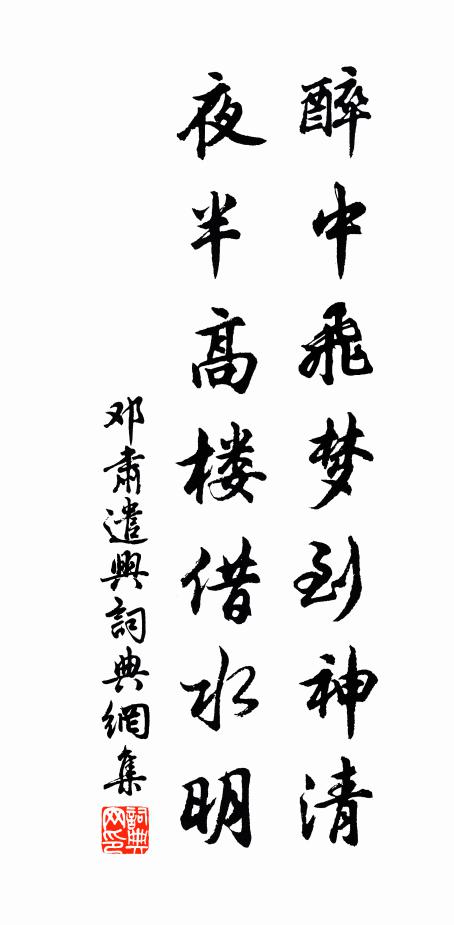 醉中飛梦到神清
夜半髙楼借水明
邓肅遣興詞典網集
詞典网印